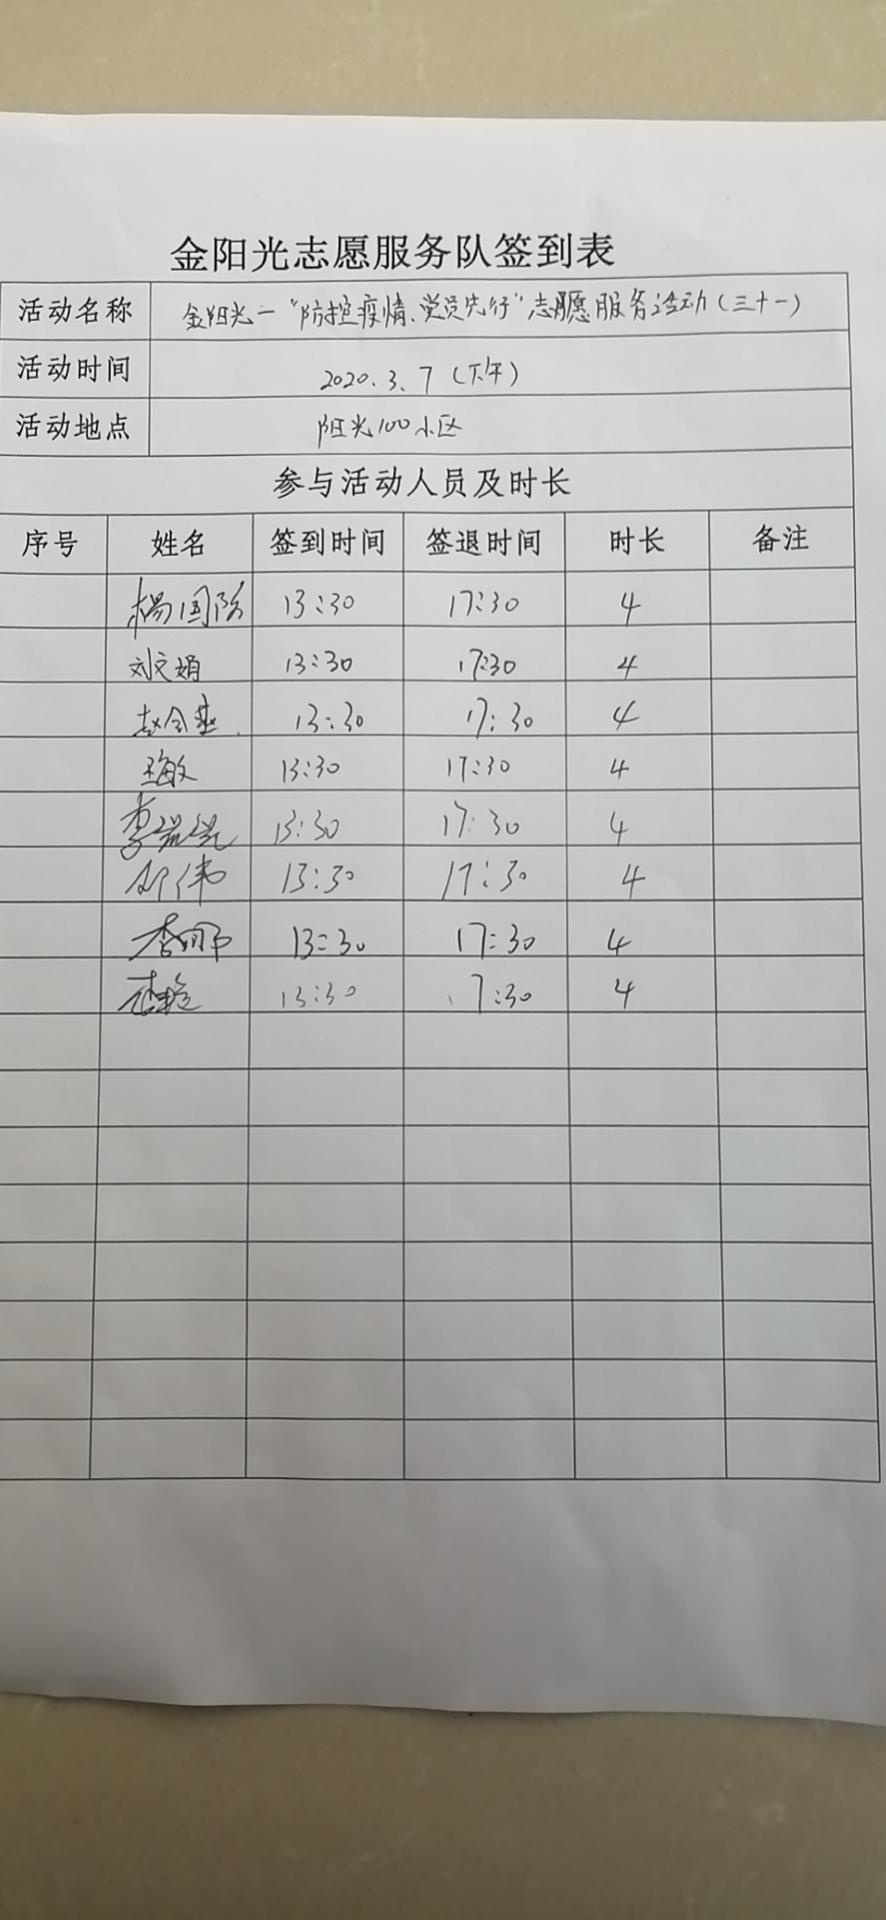 金阳光志愿服务队签到表
活动名称 金阳光—“防控疫情、党员先行”志愿服务活动(三十一)
活动时间 2020.3.7(下午)
活动地点 阳光100小区
参与活动人员及时长
序号 姓名 签到时间 签退时间 时长 备注
杨国防 13:30 17:30 4
刘文娟 13:30 17:30 4
13:30 17:30 4
王敏 13:30 17:30 4
13:30 17:30 4
伟 13:30 17:30 4
李娜 13:30 17:30 4
13:30 17:30 4